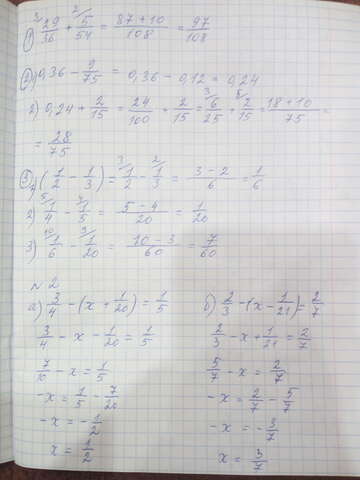 1) ³29/36 + ²5/54 = 87 + 10/108 = 97/108
2) 1) 0,36 - 9/75 = 0,36 - 0,12 = 0,24
2) 0,24 + 2/15 = 24/100 + 2/15 = ³6/25 + ⁵2/15 = 18 + 10/75 =
= 28/75
3) 1) (1/2 - 1/3) = ³1/2 - ²1/3 = 3 - 2/6 = 1/6
2) ⁵1/4 - ⁴1/5 = 5 - 4/20 = 1/20
3) ¹⁰1/6 - ³1/20 = 10 - 3/60 = 7/60
№ 2
а) 3/4 - (x + 1/20) = 1/5
3/4 - x - 1/20 = 1/5
7/10 - x = 1/5
-x = 1/5 - 7/20
-x = -1/2
x = 1/2
б) 2/3 - (x - 1/21) = 2/7
2/3 - x + 1/21 = 2/7
5/7 - x = 2/7
-x = 2/7 - 5/7
-x = -3/7
x = 3/7